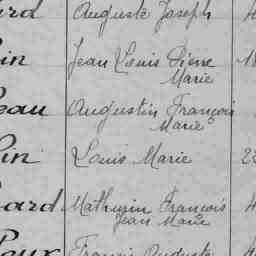 ard Auguste Joseph
in Jean Louis Pierre
Marie
eau Augustin François
Marie
in Louis Marie 2
ard Mathurin François
Jean Marie
oux Francis Auguste